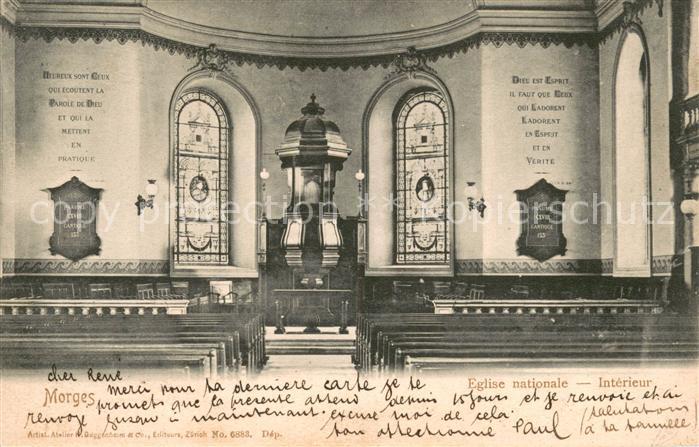 Heureux sont Ceux
qui écoutent la
Parole de Dieu
et qui la
mettent
en
pratique
Dieu est Esprit
il faut que Ceux
qui L'adorent
L'adorent
en Esprit
et en
Vérité
CLVIII
CANTIQUE
copy protection
copyrightschutz
Eglise nationale — Intérieur
Morges
cher René
merci pour ta dernière carte je te
promets que la présente attend depuis 15 jours et je renvoie et ai
renvoyé jusqu'à maintenant. excuse moi de cela.
ton affectionné Paul
(salutations
à ta famille
Artist. Atelier H. Guggenheim & Co., Editeurs, Zürich No. 6883. Dép.